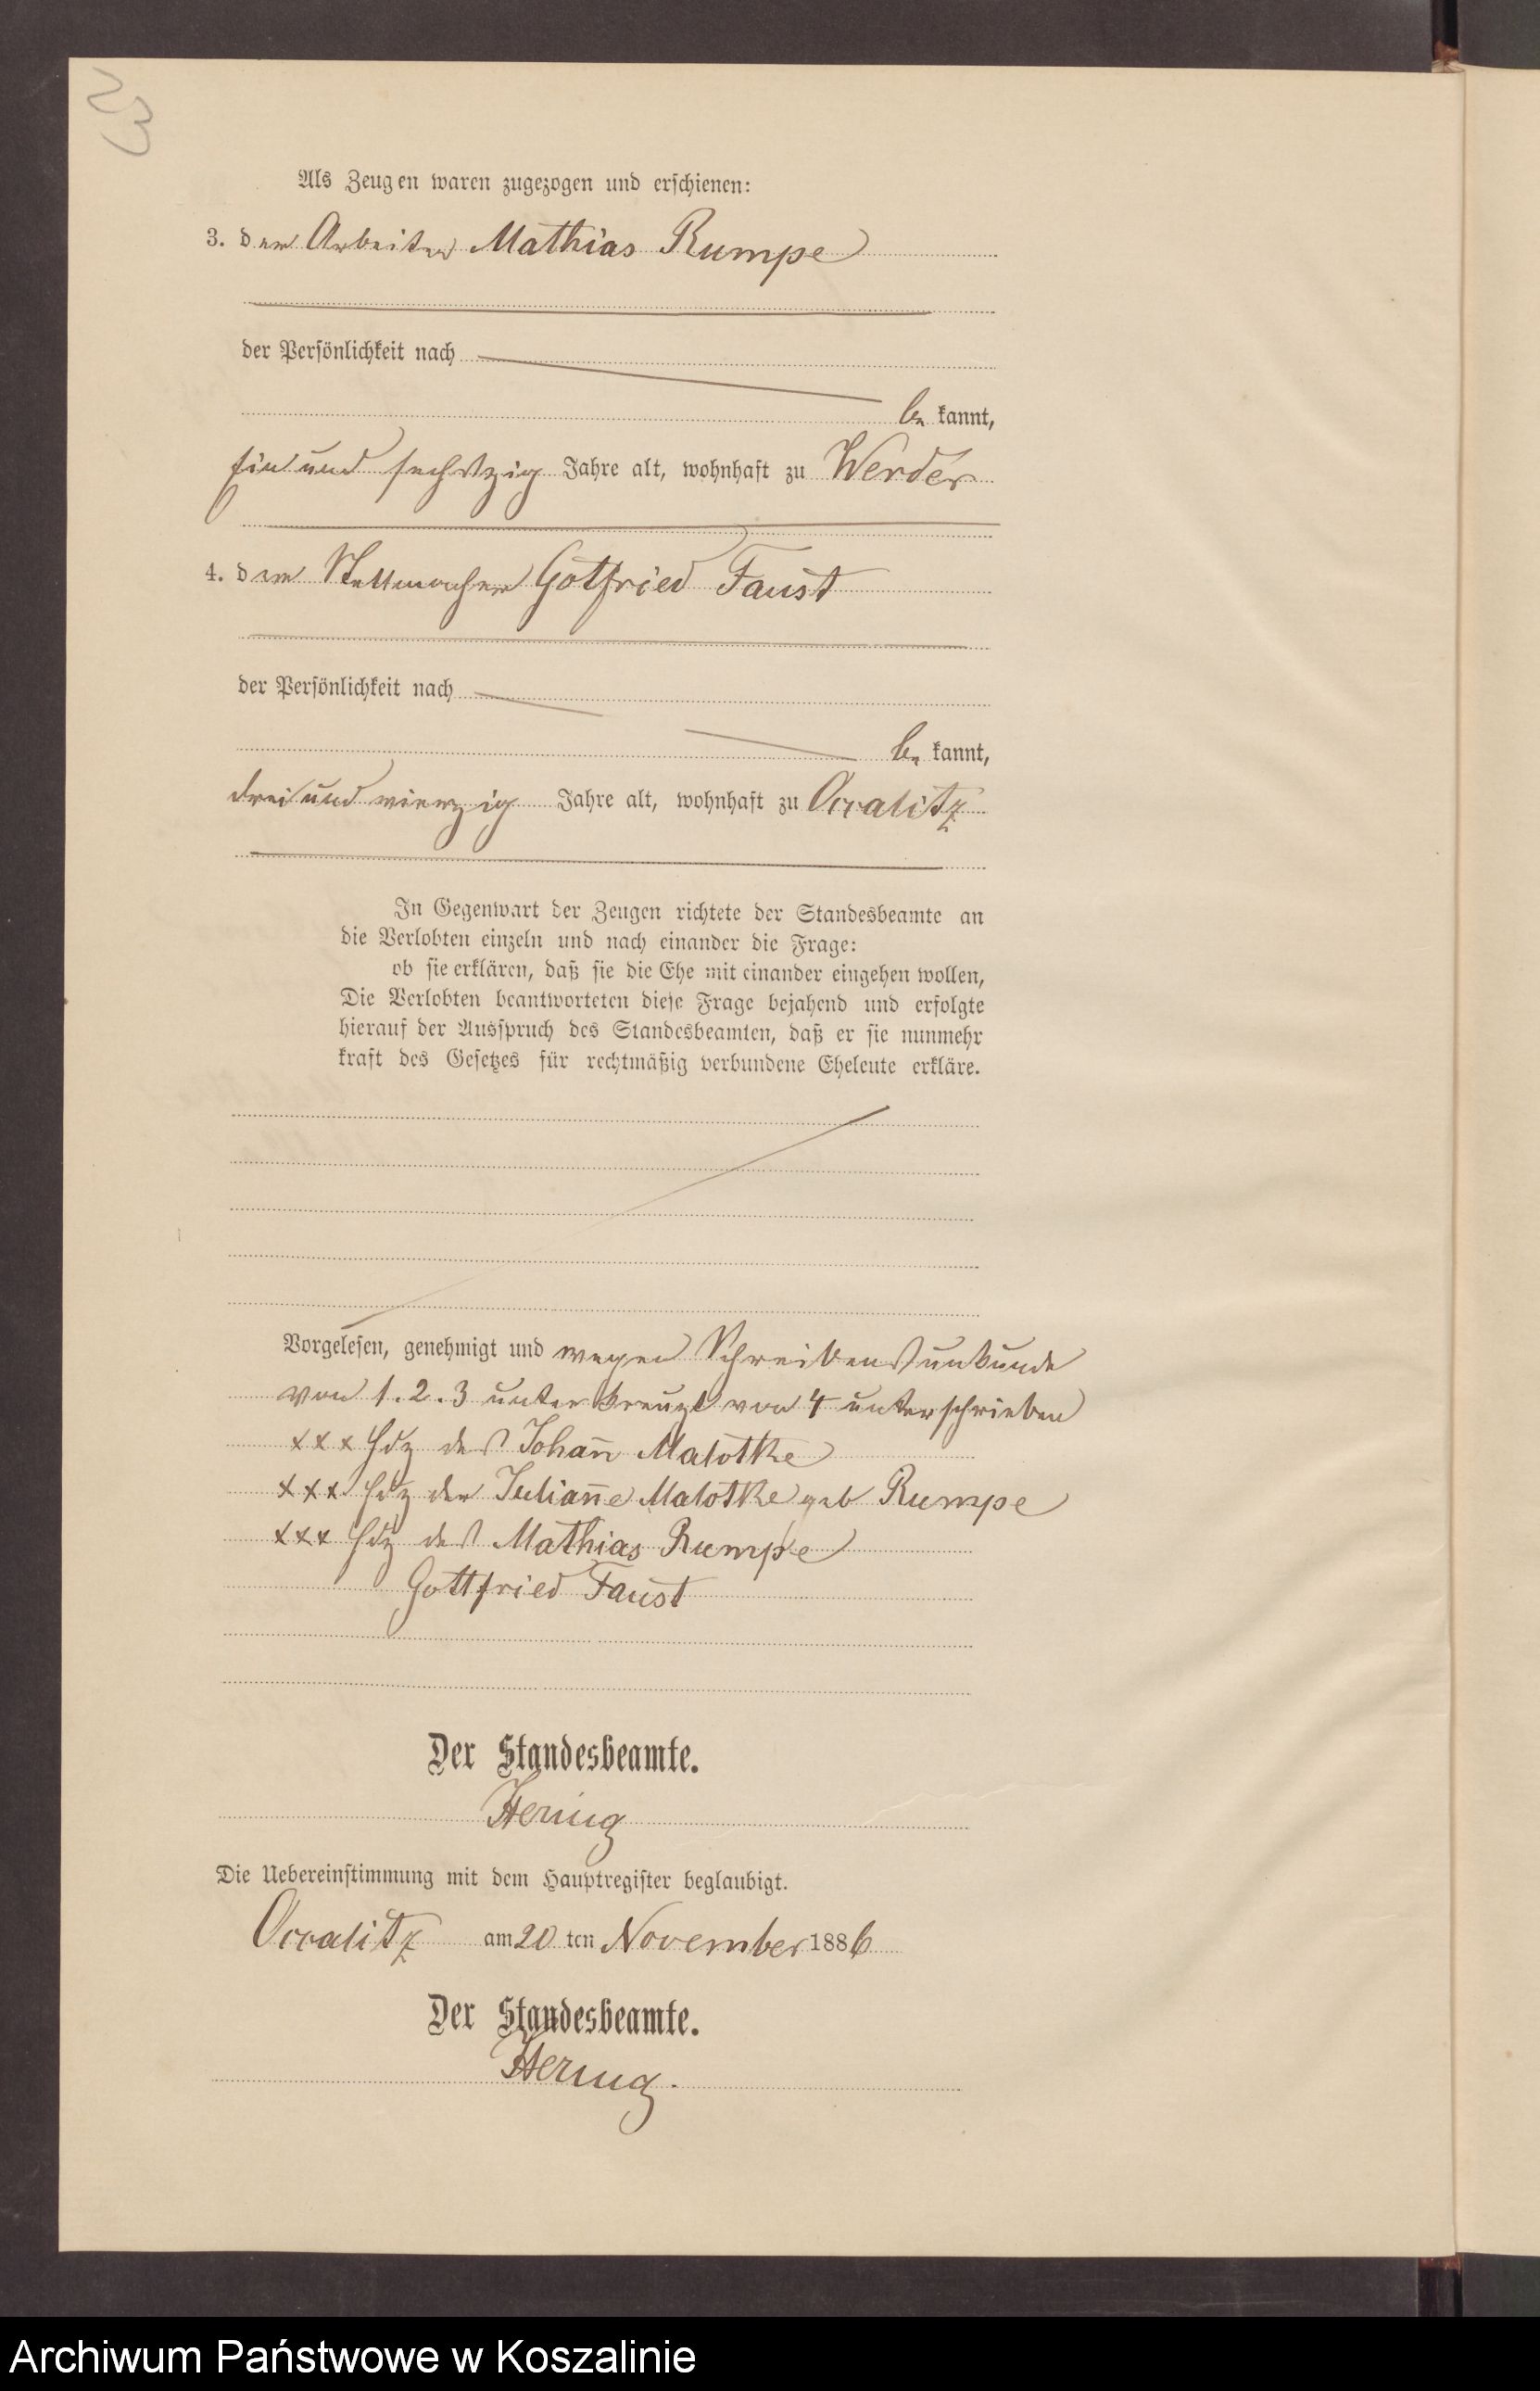 23
Als Zeugen waren zugezogen und erschienen:
3. der Arbeiter Mathias Rumpe
der Persönlichkeit nach
be kannt,
ein und sechszig Jahre alt, wohnhaft zu Werder
4. der Stellmacher Gotfried Faust
der Persönlichkeit nach
be kannt,
drei und vierzig Jahre alt, wohnhaft zu Occalitz
In Gegenwart der Zeugen richtete der Standesbeamte an
die Verlobten einzeln und nach einander die Frage:
ob sie erklären, daß sie die Ehe mit einander eingehen wollen,
Die Verlobten beantworteten diese Frage bejahend und erfolgte
hierauf der Ausspruch des Standesbeamten, daß er sie nunmehr
kraft des Gesetzes für rechtmäßig verbundene Eheleute erkläre.
Vorgelesen, genehmigt und wegen Schreibensunkunde
von 1. 2. 3 unterkreuzt von 4 unterschrieben
xxx Hdz des Johan̄ Malotke
xxx Hdz der Julian̄e Malotke geb Rumpe
xxx Hdz des Mathias Rumpe
Gottfried Faust
Der Standesbeamte.
Hering
Die Uebereinstimmung mit dem Hauptregister beglaubigt.
Occalitz am 20 ten November 1886
Der Standesbeamte.
Hering.
Archiwum Państwowe w Koszalinie